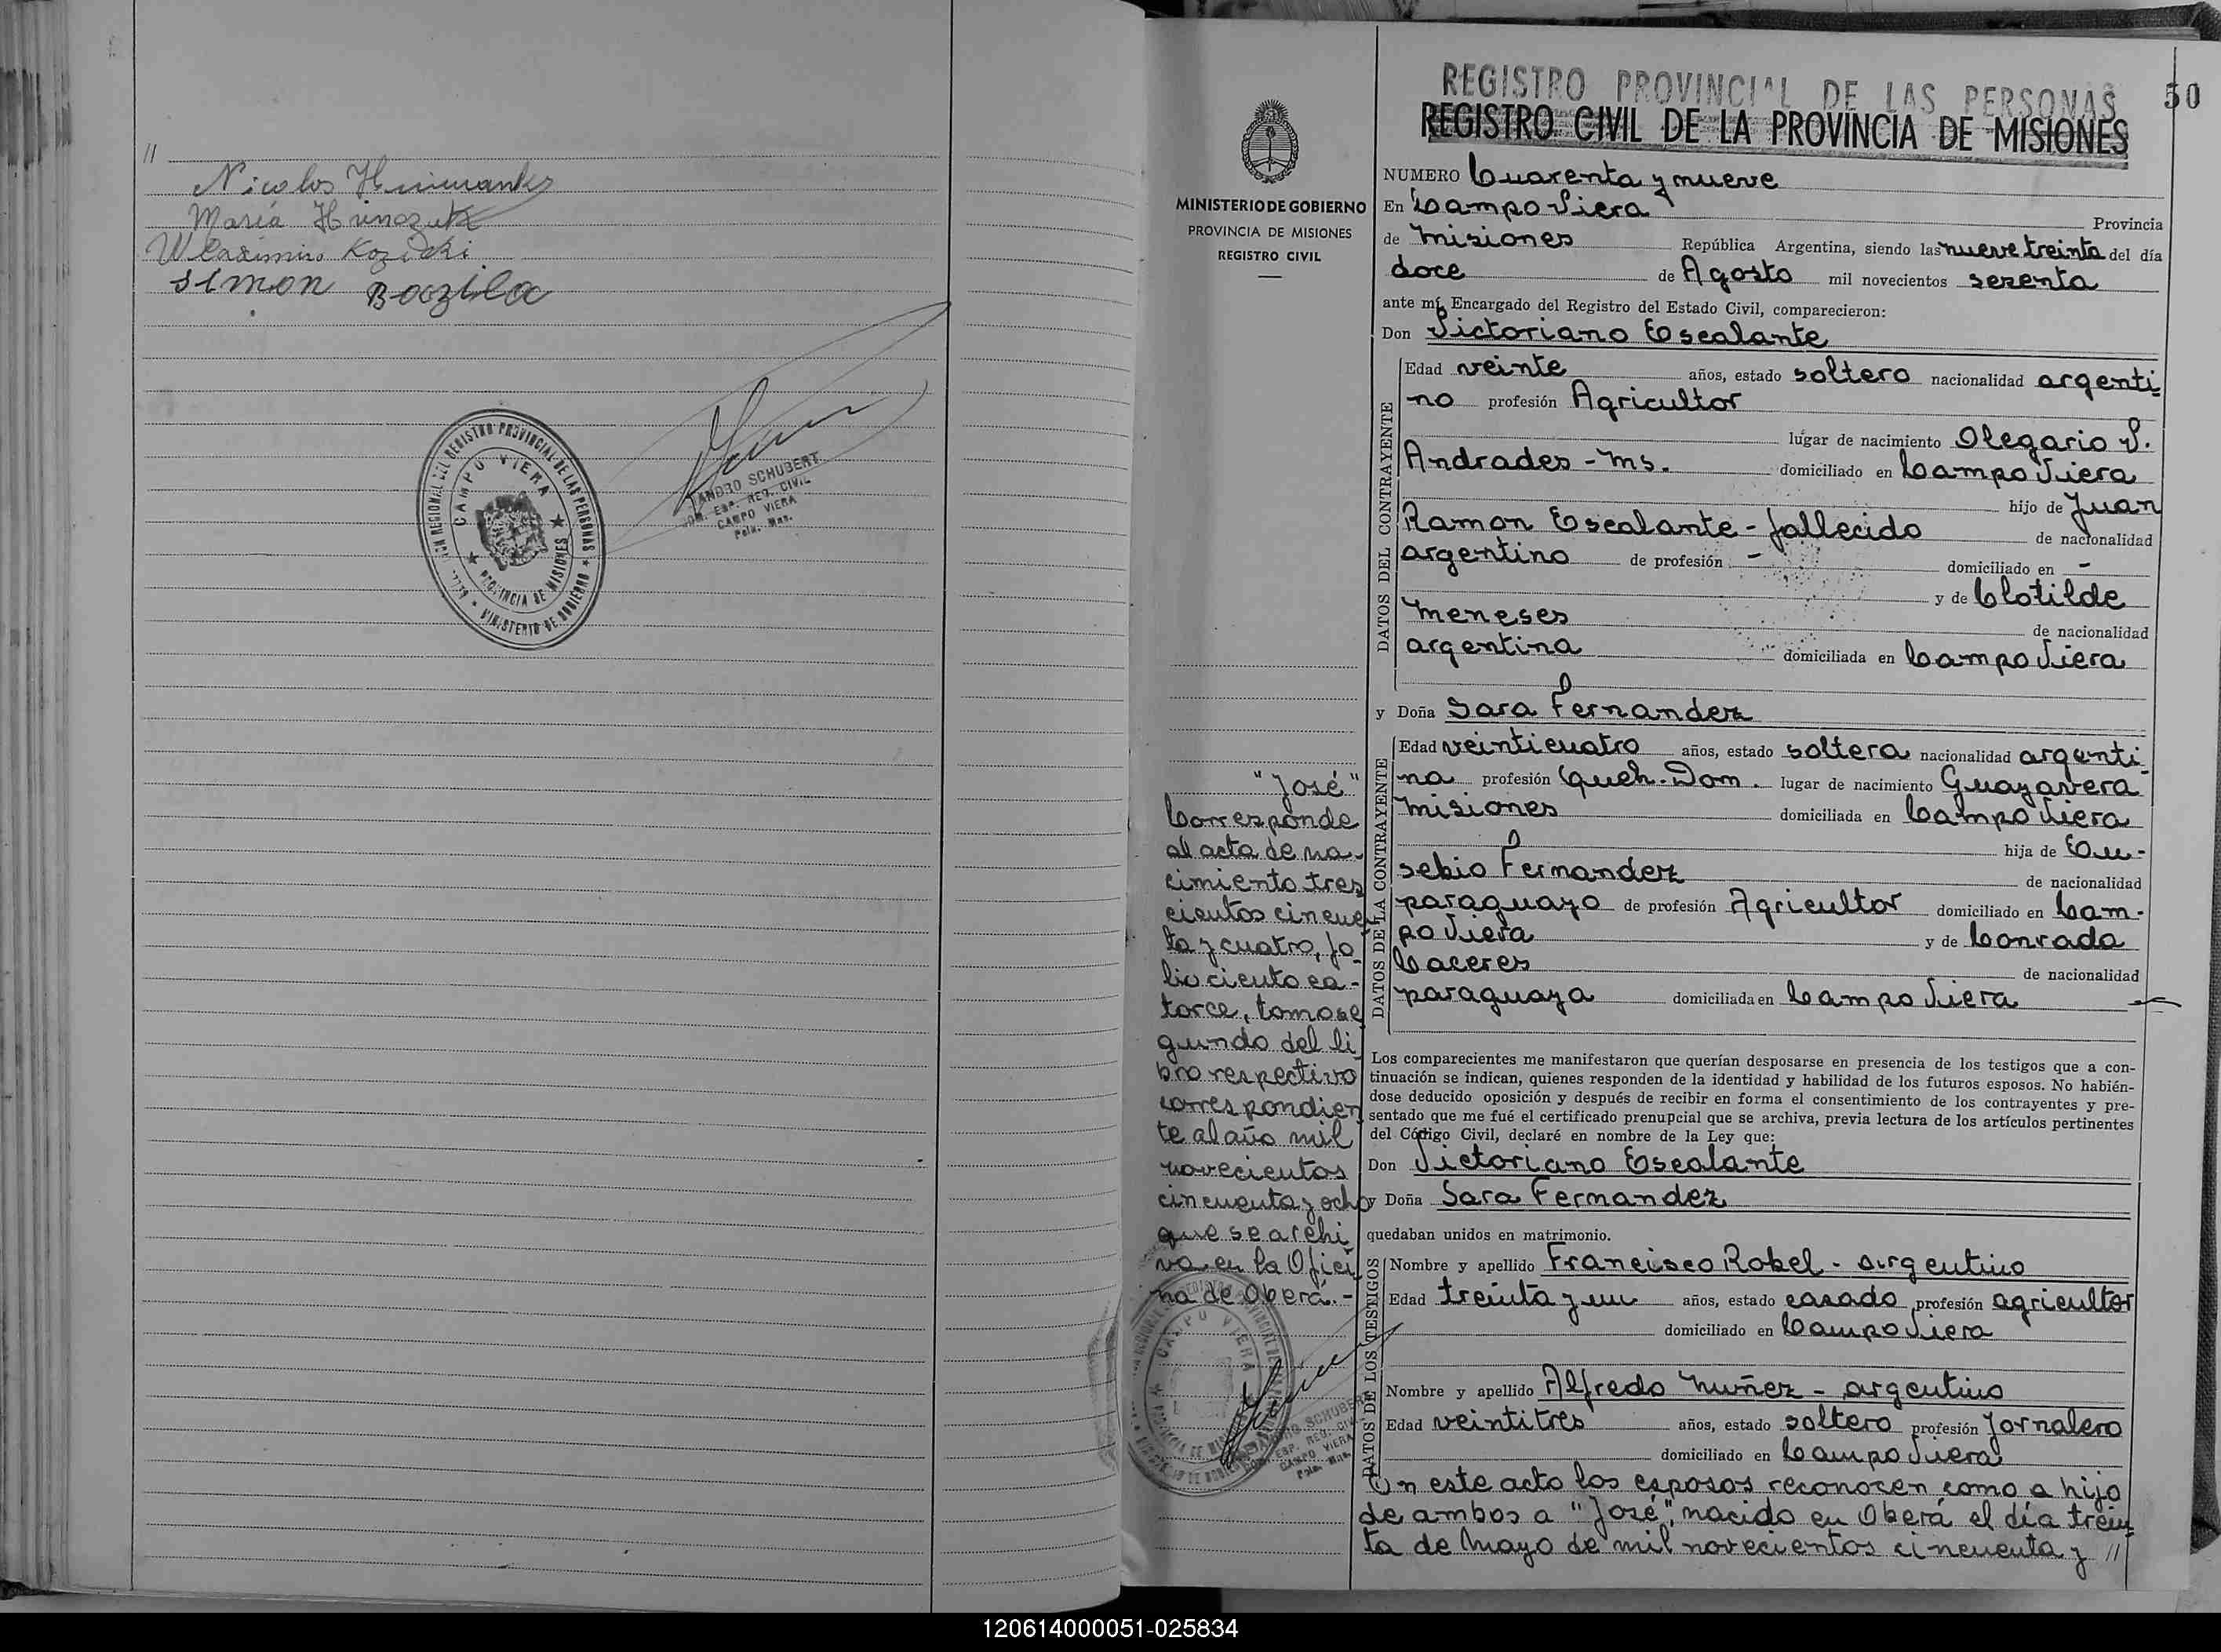 //
Nicolas
María
Wlasimiro Kozicki
simon Bozila
CAMPO VIERA
PROVINCIA DE MISIONES
MINISTERIO DE GOBIERNO
SCHUBERT
ESP. REG. CIVIL
CAMPO VIERA
Pcia. Mns.
50
REGISTRO PROVINCIAL DE LAS PERSONAS
REGISTRO CIVIL DE LA PROVINCIA DE MISIONES
MINISTERIO DE GOBIERNO
PROVINCIA DE MISIONES
REGISTRO CIVIL
NUMERO Cuarenta y nueve
En Campo Viera Provincia
de Misiones República Argentina, siendo las nueve treinta del día
doce de Agosto mil novecientos sesenta
ante mí, Encargado del Registro del Estado Civil, comparecieron:
Don Victoriano Escalante
DATOS DEL CONTRAYENTE
Edad veinte años, estado soltero nacionalidad argenti-
no profesión Agricultor
lugar de nacimiento Olegario V.
Andrades - Ms. domiciliado en Campo Viera
hijo de Juan
Ramon Escalante - fallecido de nacionalidad
argentino de profesión - domiciliado en -
y de Clotilde
Meneses de nacionalidad
argentina domiciliada en Campo Viera
y Doña Sara Fernandez
DATOS DE LA CONTRAYENTE
Edad veinticuatro años, estado soltera nacionalidad argenti-
na profesión Queh. Dom. lugar de nacimiento Guayavera
Misiones domiciliada en Campo Viera
hija de Eu-
sebio Fernandez de nacionalidad
paraguayo de profesión Agricultor domiciliado en Cam-
po Viera y de Conrada
Caceres de nacionalidad
paraguaya domiciliada en Campo Viera
Los comparecientes me manifestaron que querían desposarse en presencia de los testigos que a con-
tinuación se indican, quienes responden de la identidad y habilidad de los futuros esposos. No habién-
dose deducido oposición y después de recibir en forma el consentimiento de los contrayentes y pre-
sentado que me fué el certificado prenupcial que se archiva, previa lectura de los artículos pertinentes
del Código Civil, declaré en nombre de la Ley que:
Don Victoriano Escalante
y Doña Sara Fernandez
quedaban unidos en matrimonio.
DATOS DE LOS TESTIGOS
Nombre y apellido Francisco Robel - argentino
Edad treinta y un años, estado casado profesión agricultor
domiciliado en Campo Viera
Nombre y apellido Alfredo Nuñez - argentino
Edad veintitres años, estado soltero profesión Jornalero
domiciliado en Campo Viera
En este acto los esposos reconocen como a hijo
de ambos a "José", nacido en Oberá el día trein-
ta de Mayo de mil novecientos cincuenta y //
"José"
Corresponde
al acta de na-
cimiento tres
cientos cincuen
ta y cuatro, fo-
lio ciento ca-
torce, tomo se
gundo del li
bro respectivo
correspondien
te al año mil
novecientos
cincuenta y ocho
que se archi
va en la Ofici
na de Oberá.-
CAMPO VIERA
SCHUBERT
ESP. REG. CIVIL
CAMPO VIERA
Pcia. Mns.
120614000051-025834